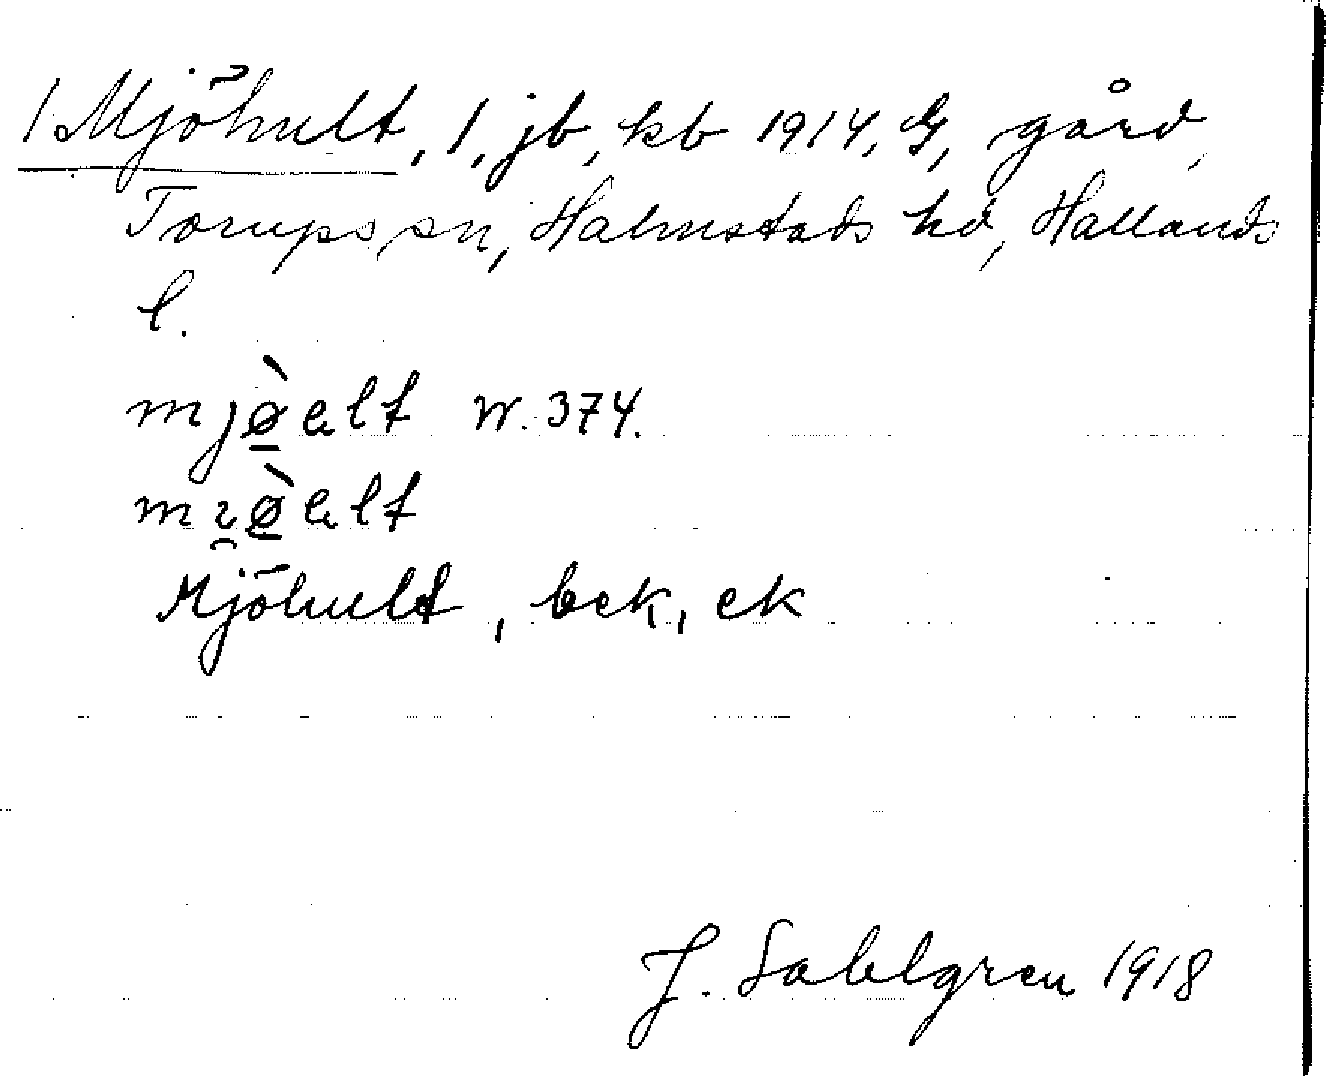 1 Mjöhult, 1, jb, kb 1914, G, gård,
Torups sn, Halmstads hd, Hallands
l.
mjø̲̀elt W. 374.
mı̯ø̲̀elt
Mjöhult, bek, ek
J. Sahlgren 1918